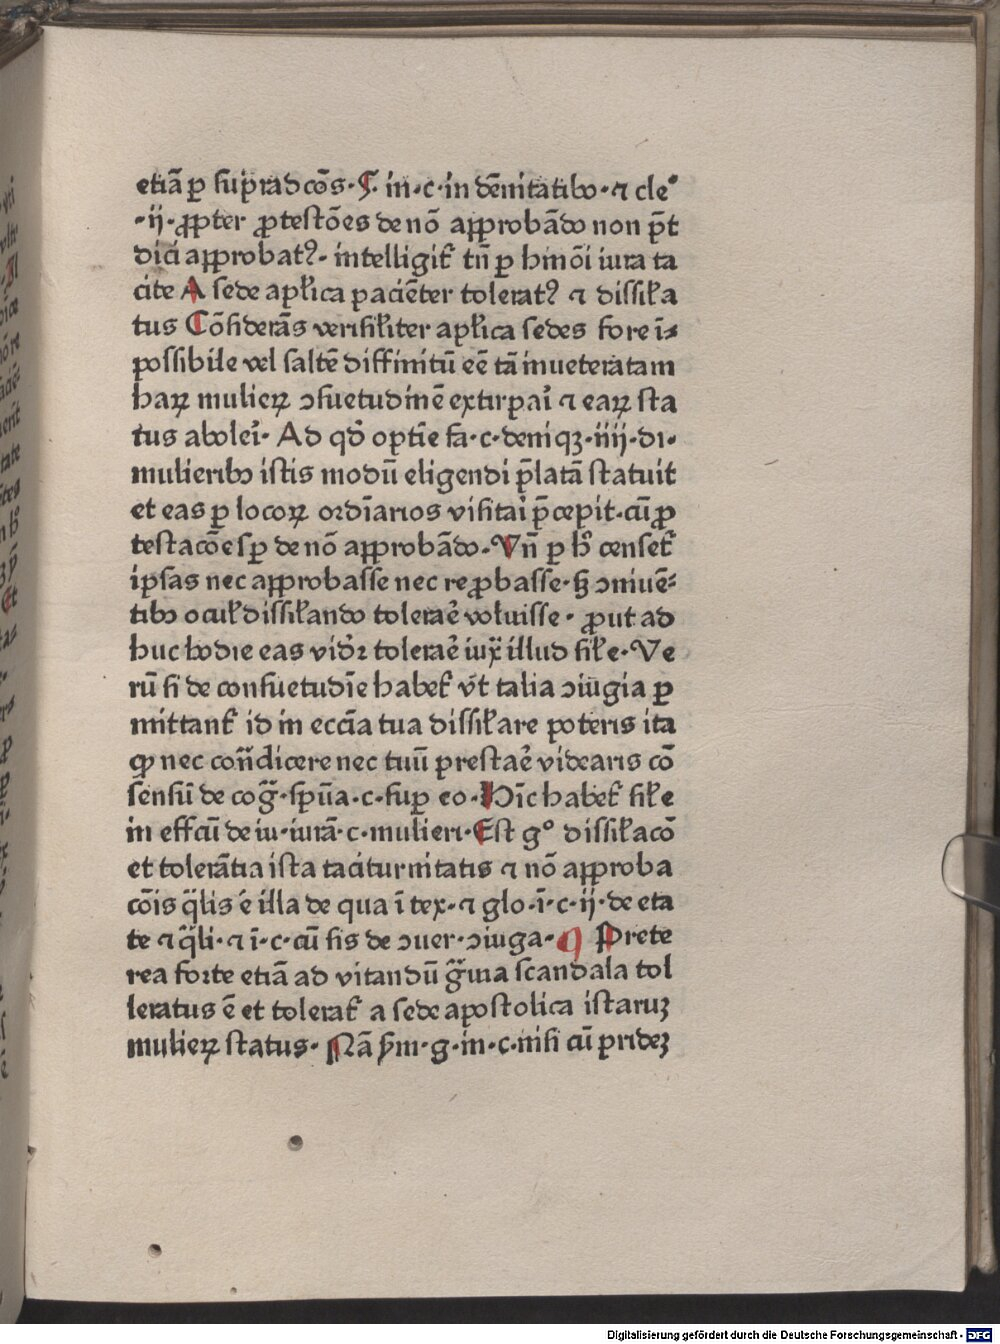 etiã ꝑ sup̱radcõs·§· in·c·in dẽnitatibꝯ·⁊ cle·
·ij·ꝓpter ꝓtestões de nõ aꝓbãdo non p̃t
dici approbatꝰ· intelligit̃ tñ ꝑ hmõi iura ta
cite A sede apƚica paciẽter toleratꝰ ⁊ dissiƚa
tus Cõsiderãs verisiƚiter apƚica sedes fore ĩ-
possibile vel saltẽ diffinitũ eẽ tã inueteratam
haꝝ mulieꝝ ↄsuetudinẽ extirpai̾ ⁊ eaꝝ sta
tus abolei̾· Ad qd̾ optĩe fa·c·deniqꝫ·iiij·di·
mulieribꝯ istis modũ eligendi p̃latã statuit
et eas ꝑ locoꝝ ordĩarios visitai̾ p̃cepit·cũ ꝓ
testacõe sꝑ de nõ approbãdo·Vñ ꝑ h̾ censet̃
ipsas nec approbasse nec reꝓbasse·sꝫ ↄniuẽ-
tibꝯ ocuƚ dissiƚando tolerae̾ voluisse· ꝓut ad
huc hodie eas vid̾ꝛ tolerae̾ iux̃ illud siƚe·Ve
rũ si de consuetudĩe habet̃ vt̾ talia ↄiugia ꝑ
mittant̃ id in ecc̃ia tua dissiƚare poteris ita
ꝙ nec cor̃dicere nec tuũ prestae̾ videaris cõ
sensũ de cog̃·spũa·c·suꝑ eo·Hĩc habet̃ siƚe
in effcũ de iu·iurã·c·mulieri·Est gº dissiƚacõ
et tolerãtia ista taciturnitatis ⁊ nõ approba
cõis q̃lis ẽ illa de qua ĩ tex·⁊ glo·ĩ·c·ij·de eta
te ⁊ q̃li·⁊ ĩ·c·cũ sis de ↄuer·ↄiuga·¶ Prete
rea forte etiã ad vitandũ g̃uia scandala tol
leratus ẽ et tolerat̃ a sede apostolica istaruꝫ
mulieꝝ status· Nã p̾m·g·in·c·nisi cũ prideꝫ
Digitalisierung gefördert durch die Deutsche Forschungsgemeinschaft - DFG